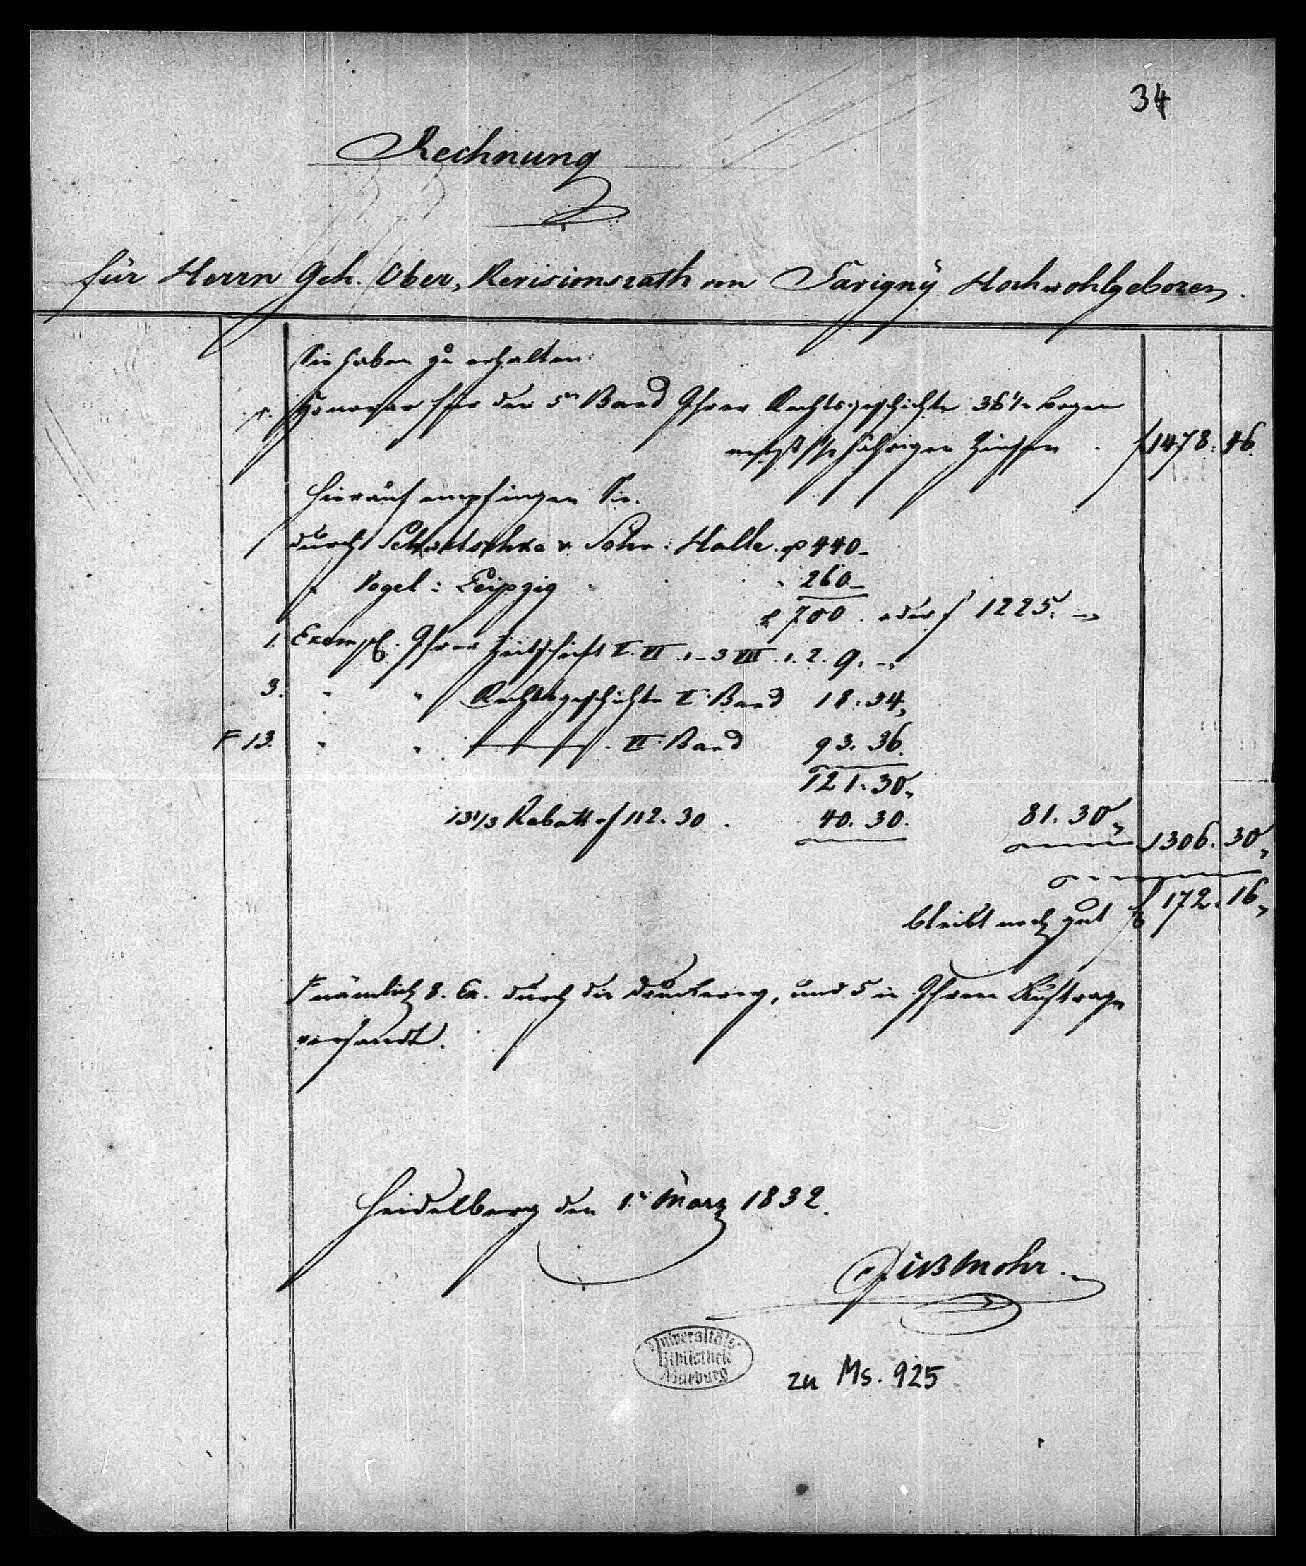 34
Rechnung
für Herrn Geh. Ober, Revisionsrath von Savigny Hochwohlgeboren.
Sie haben zu erhalten:
Honorar für den 5n Band Ihrer Rechtsgeschichte 36½ Bogen
nebst jährigen Zinsen . f 1478. 46.
Hierauf empfingen Sie.
durch Schwetschke u. Sohn: Halle. 440_
" Vogel: Leipzig " 260_
700. oder f 1225. —
1. Exempl. Ihrer Zeitschrift V. VI. 1–3 VII. 1. 2. 9. —
3. " " Rechtsgeschichte V. Band 18. 54,
F 13. " " ——— VI. Band 93. 36.
121. 30,
33⅓ Rabatt a f 112. 30 . 40. 30. 81. 30, 1306. 30,
bleibt noch gut f 172. 16,
F nämlich 8. Ex. durch die Druckerey, und 5 in Ihrem Auftrage
versandt.
Heidelberg den 1n März 1832.
Mohr.
Universitäts-
Bibliothek
Marburg
zu Ms. 925